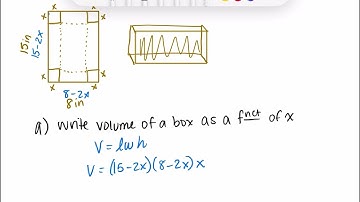 x x
15in
15-2x
x x
x x
8-2x
8in
a) write volume of a box as a fnct of x
V = lwh
V = (15-2x)(8-2x)x